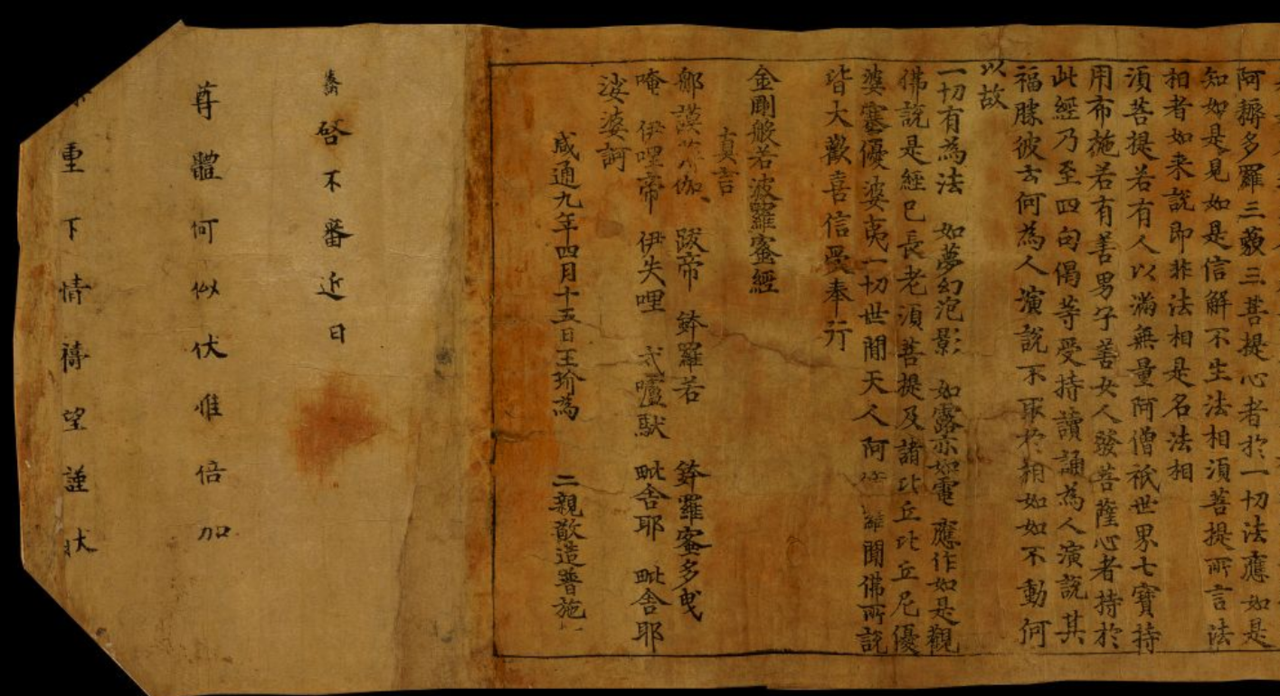 阿耨多羅三藐三菩提心者於一切法應如是
知如是見如是信解不生法相湏菩提所言法
相者如来說即非法相是名法相
湏菩提若有人以滿無量阿僧祇世界七寶持
用布施若有善男子善女人發菩薩心者持於
此經乃至四句偈等受持讀誦為人演說其
福勝彼云何為人演說不取於相如如不動何
以故
一切有為法 如夢幻泡影 如露亦如電 應作如是觀
佛說是經已長老湏菩提及諸比丘比丘尼優
婆塞優婆夷一切世間天人阿脩羅聞佛所說
皆大歡喜信受奉行
金剛般若波羅蜜經
真言
那謨薄伽 跋帝 鉢羅若 鉢羅蜜多曳
唵 伊哩帝 伊失哩 戍嚧馱 毗舍耶 毗舍耶
娑婆訶
咸通九年四月十五日王玠為 二親敬造普施
啓不審近日
尊體何似伏惟倍加
重下情禱望謹狀